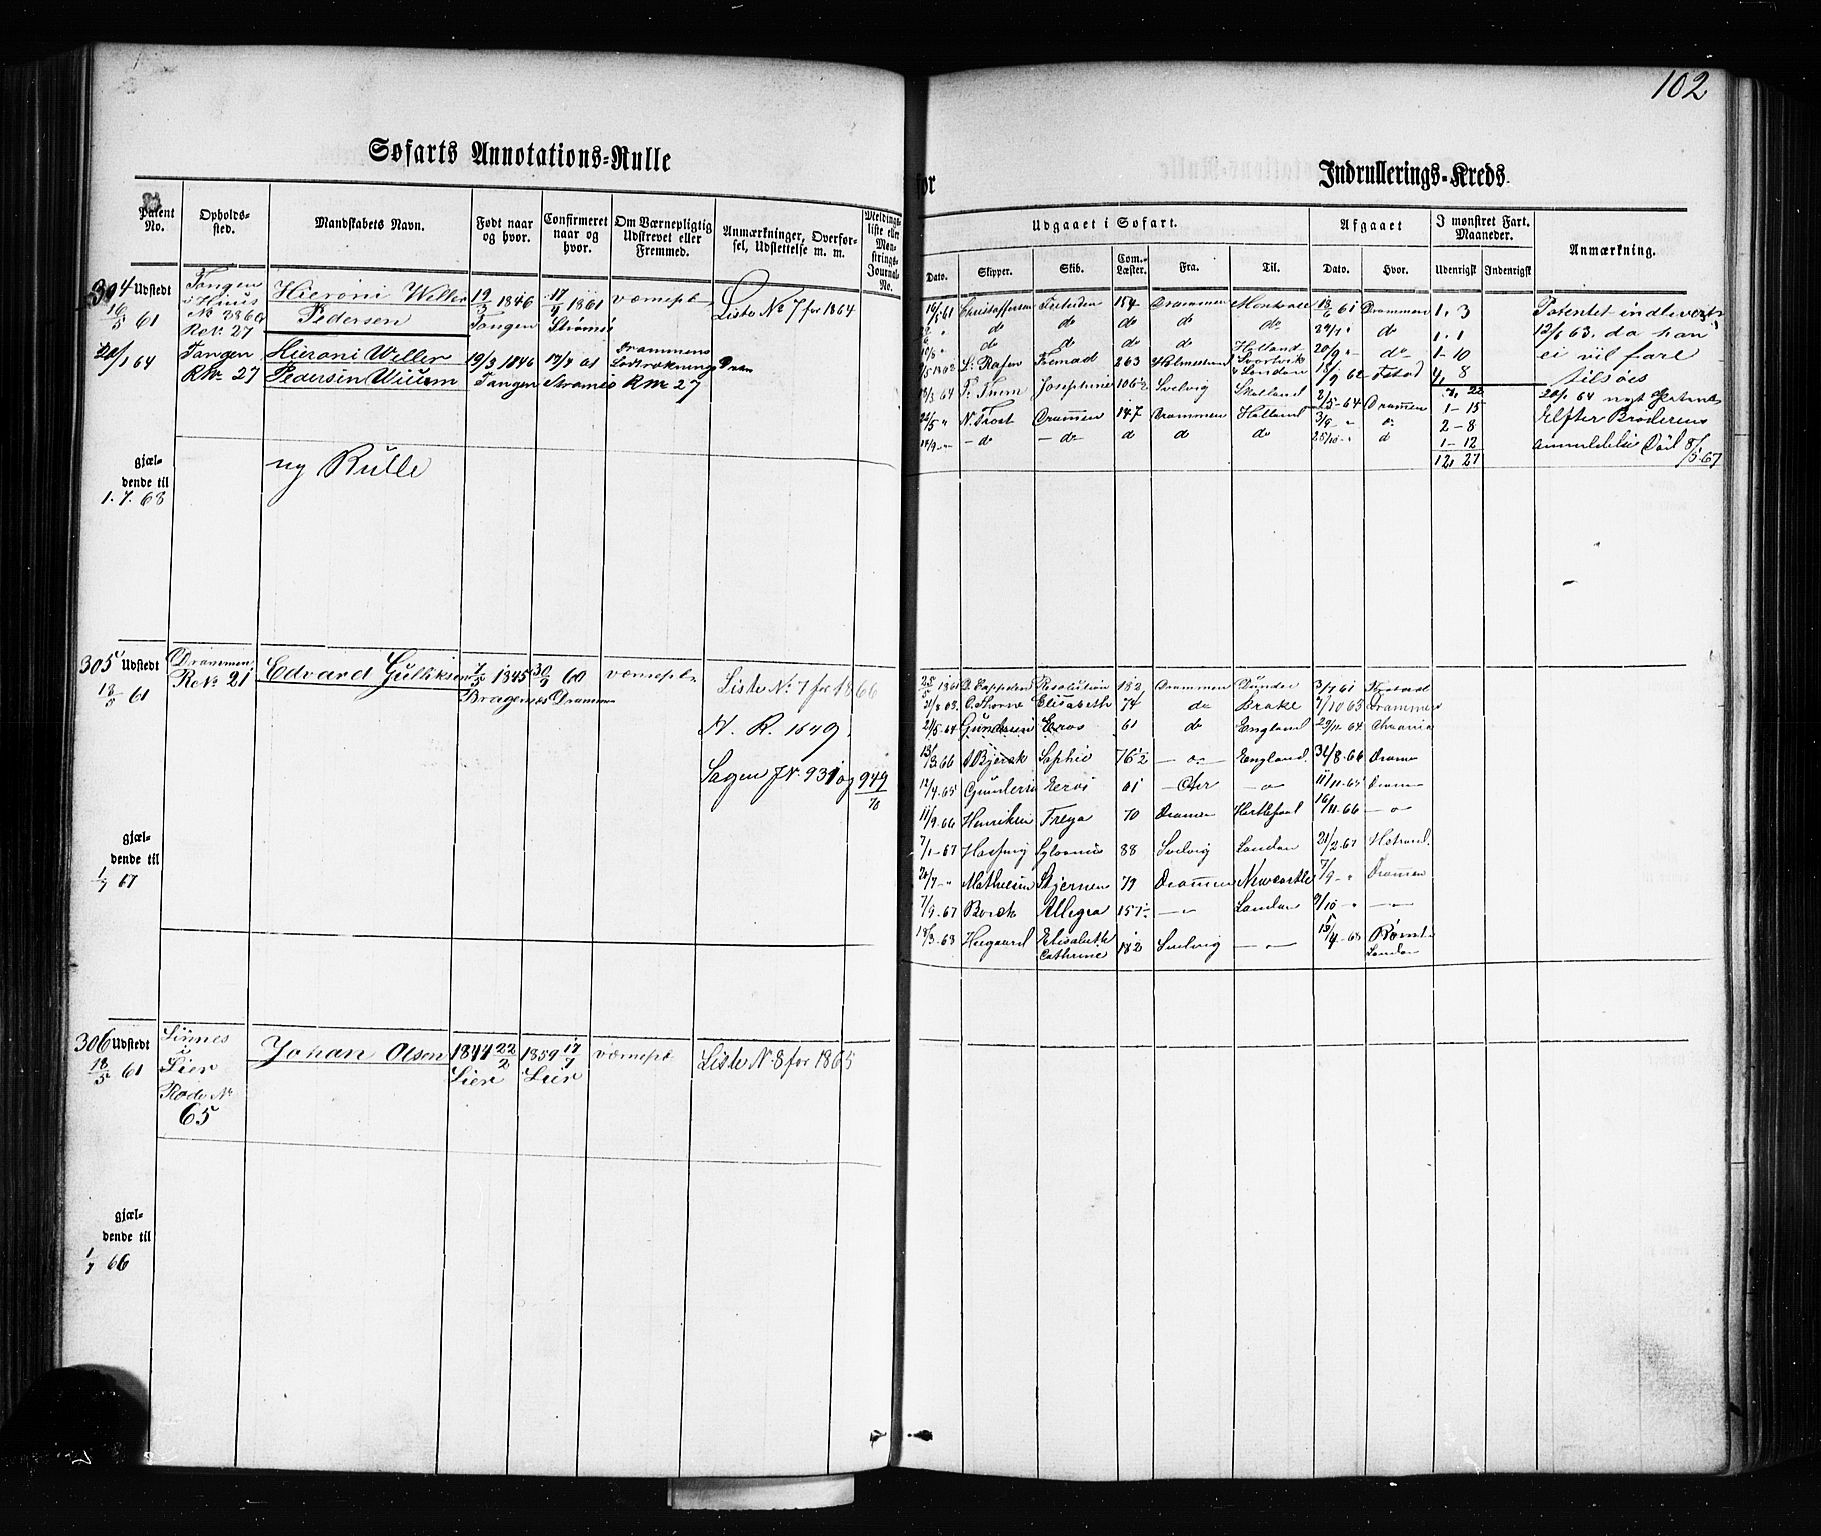 102
Søfarts Annotations-Rulle
for Indrullerings-Kreds.
Patent No.
Opholds-sted.
Mandskabets Navn.
Født naar og hvor.
Confirmeret naar og hvor.
Om Værnepligtig Udskrevet eller Fremmed.
Anmærkninger, Overfør-sel, Udslettelse m. m.
Meldings-liste eller Mønstrings-Journal-No.
Udgaaet i Søfart.
Afgaaet
I mønstret Fart. Maaneder.
Anmærkning.
Dato.
Skipper.
Skib.
Com. Læster.
Fra.
Til.
Dato.
Hvor.
Udenrigsk
Indenrigsk
304 Udstedt 16/5 61
Tangen i Huus No 386 Ro No. 27
Hieroni Weller Pedersen
19/3 1846 Tangen
17/4 1861 Strømsø
værnepl
Liste No 7 for 1864
20/1 64
Tangen RNo 27
Hieroni Weller Pedersen Willum
19/3 1846 Tangen
17/4 61 Strømsø
Drammens Lodtrækning RNo 27
gjæl-dende til 1. 7. 68
ny Rulle
16/5 61 Christoffersen 154 Drammen Montreal 18/6 61 Drammen 1. 3
do do do do do do 1. 1
do do do do Holland 20/9 do 1-10
L. Rafen Fremad 263 Holmestrand & London 4, 8
12/3 64 T. Tnem Josephine 106 1/2 Svelvig Skotland 2/5-64 Drammen 1-15
22/5 " N. Trost Drammen 147 Drammen Holland 3/9 " 2-8
19/9 - do - do do do do 25/10 - " do 1-12
12, 27
Patentet indleveret
12/6 63. da han
ei vil fare
tilsøes
20/1 64 nyt Patent
Efter Broderens
anmeldelse Død 8/5.67
305 Udstedt 18/5 61
Drammen Ro No. 21
Edvard Gulliksen
7/5 1845 Bragernes
30/9 60 Drammen
værnepl.
Liste No. 7 for 1866
N. R. 1549.
Sagen JN. 931 og 949/70
gjæl-dende til 1/7 67
25/5 1861 D. Eappelen Resolution 182 Drammen Dundee 3/7 61
21/8 63 C. Thorne Elisabeth 74 do Brake 7/10 63 Drammen
21/5.64 Gundersen Eros 61 do England 29/11.64
13/3.66 A Bjerck Sophie 76 1/2 - " - England. 31/8.66 Dramn
12/4.65 Gundersen Eros 61 - " - 11/11.65 Dramn
11/9.66 Henriksen Freya 70 Drammen Hartlepool 16/11.66 - " -
7/1-67 88 Svelvig London 21/2.67 Hstrand.
20/7-" Mathiesen Stjernen 79 Drammen Newcastle 7/9 - " Dramen
7/9-67 Borch Allegra 157 - " - London 9/10 - " - " -
18/3-68 Hiegaard Elisabeth Cathrine 182 Svelvig - " - 15/4-68 London
306 Udstedt 18/5 61
Linnes i Lier Rode No 65
Johan Olsen
1844 22/2 Lier
1859 17/7 Lier
værnepl
Liste N. 8 for 1865
gjæl-dende til 1/7 66